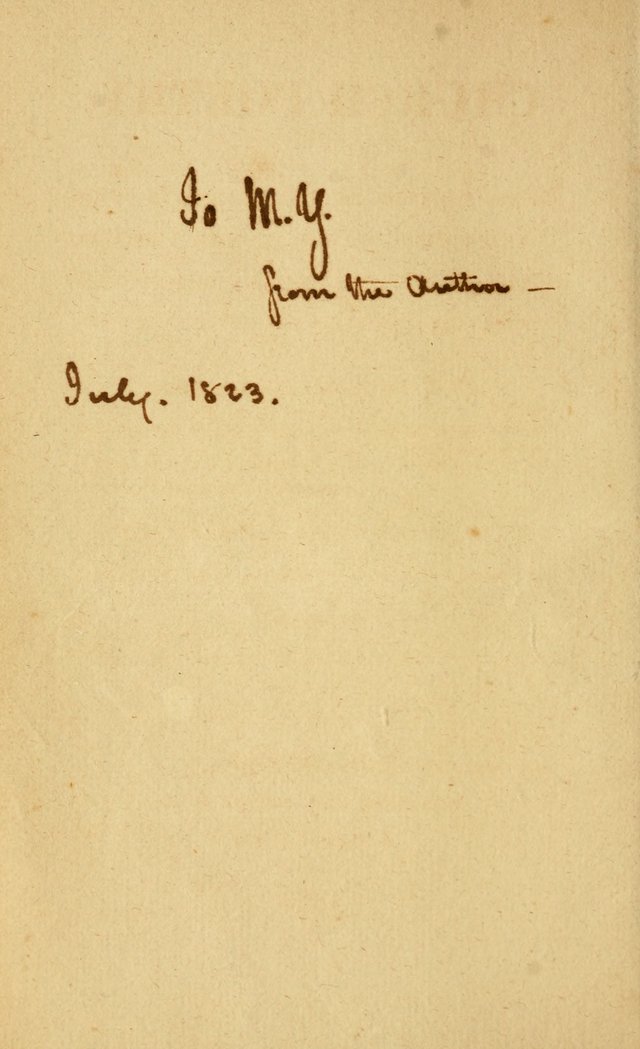 To M.Y.
from the Author —
July. 1823.